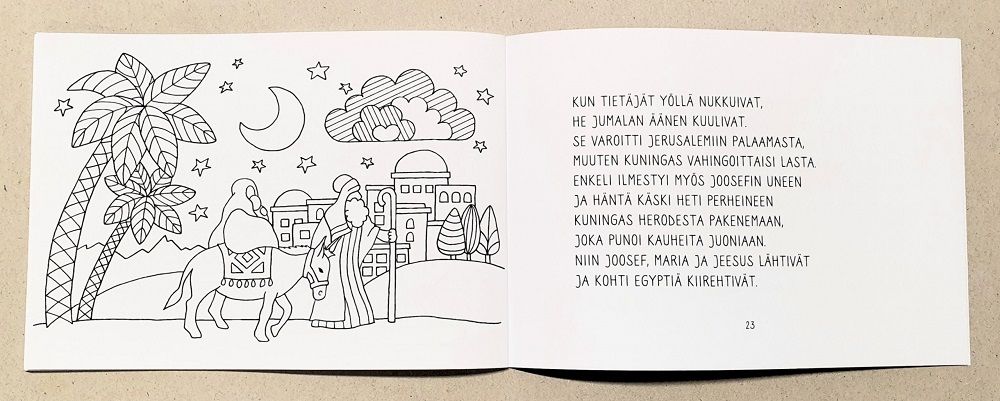 KUN TIETÄJÄT YÖLLÄ NUKKUIVAT,
HE JUMALAN ÄÄNEN KUULIVAT.
SE VAROITTI JERUSALEMIIN PALAAMASTA,
MUUTEN KUNINGAS VAHINGOITTAISI LASTA.
ENKELI ILMESTYI MYÖS JOOSEFIN UNEEN
JA HÄNTÄ KÄSKI HETI PERHEINEEN
KUNINGAS HERODESTA PAKENEMAAN,
JOKA PUNOI KAUHEITA JUONIAAN.
NIIN JOOSEF, MARIA JA JEESUS LÄHTIVÄT
JA KOHTI EGYPTIÄ KIIREHTIVÄT.
23